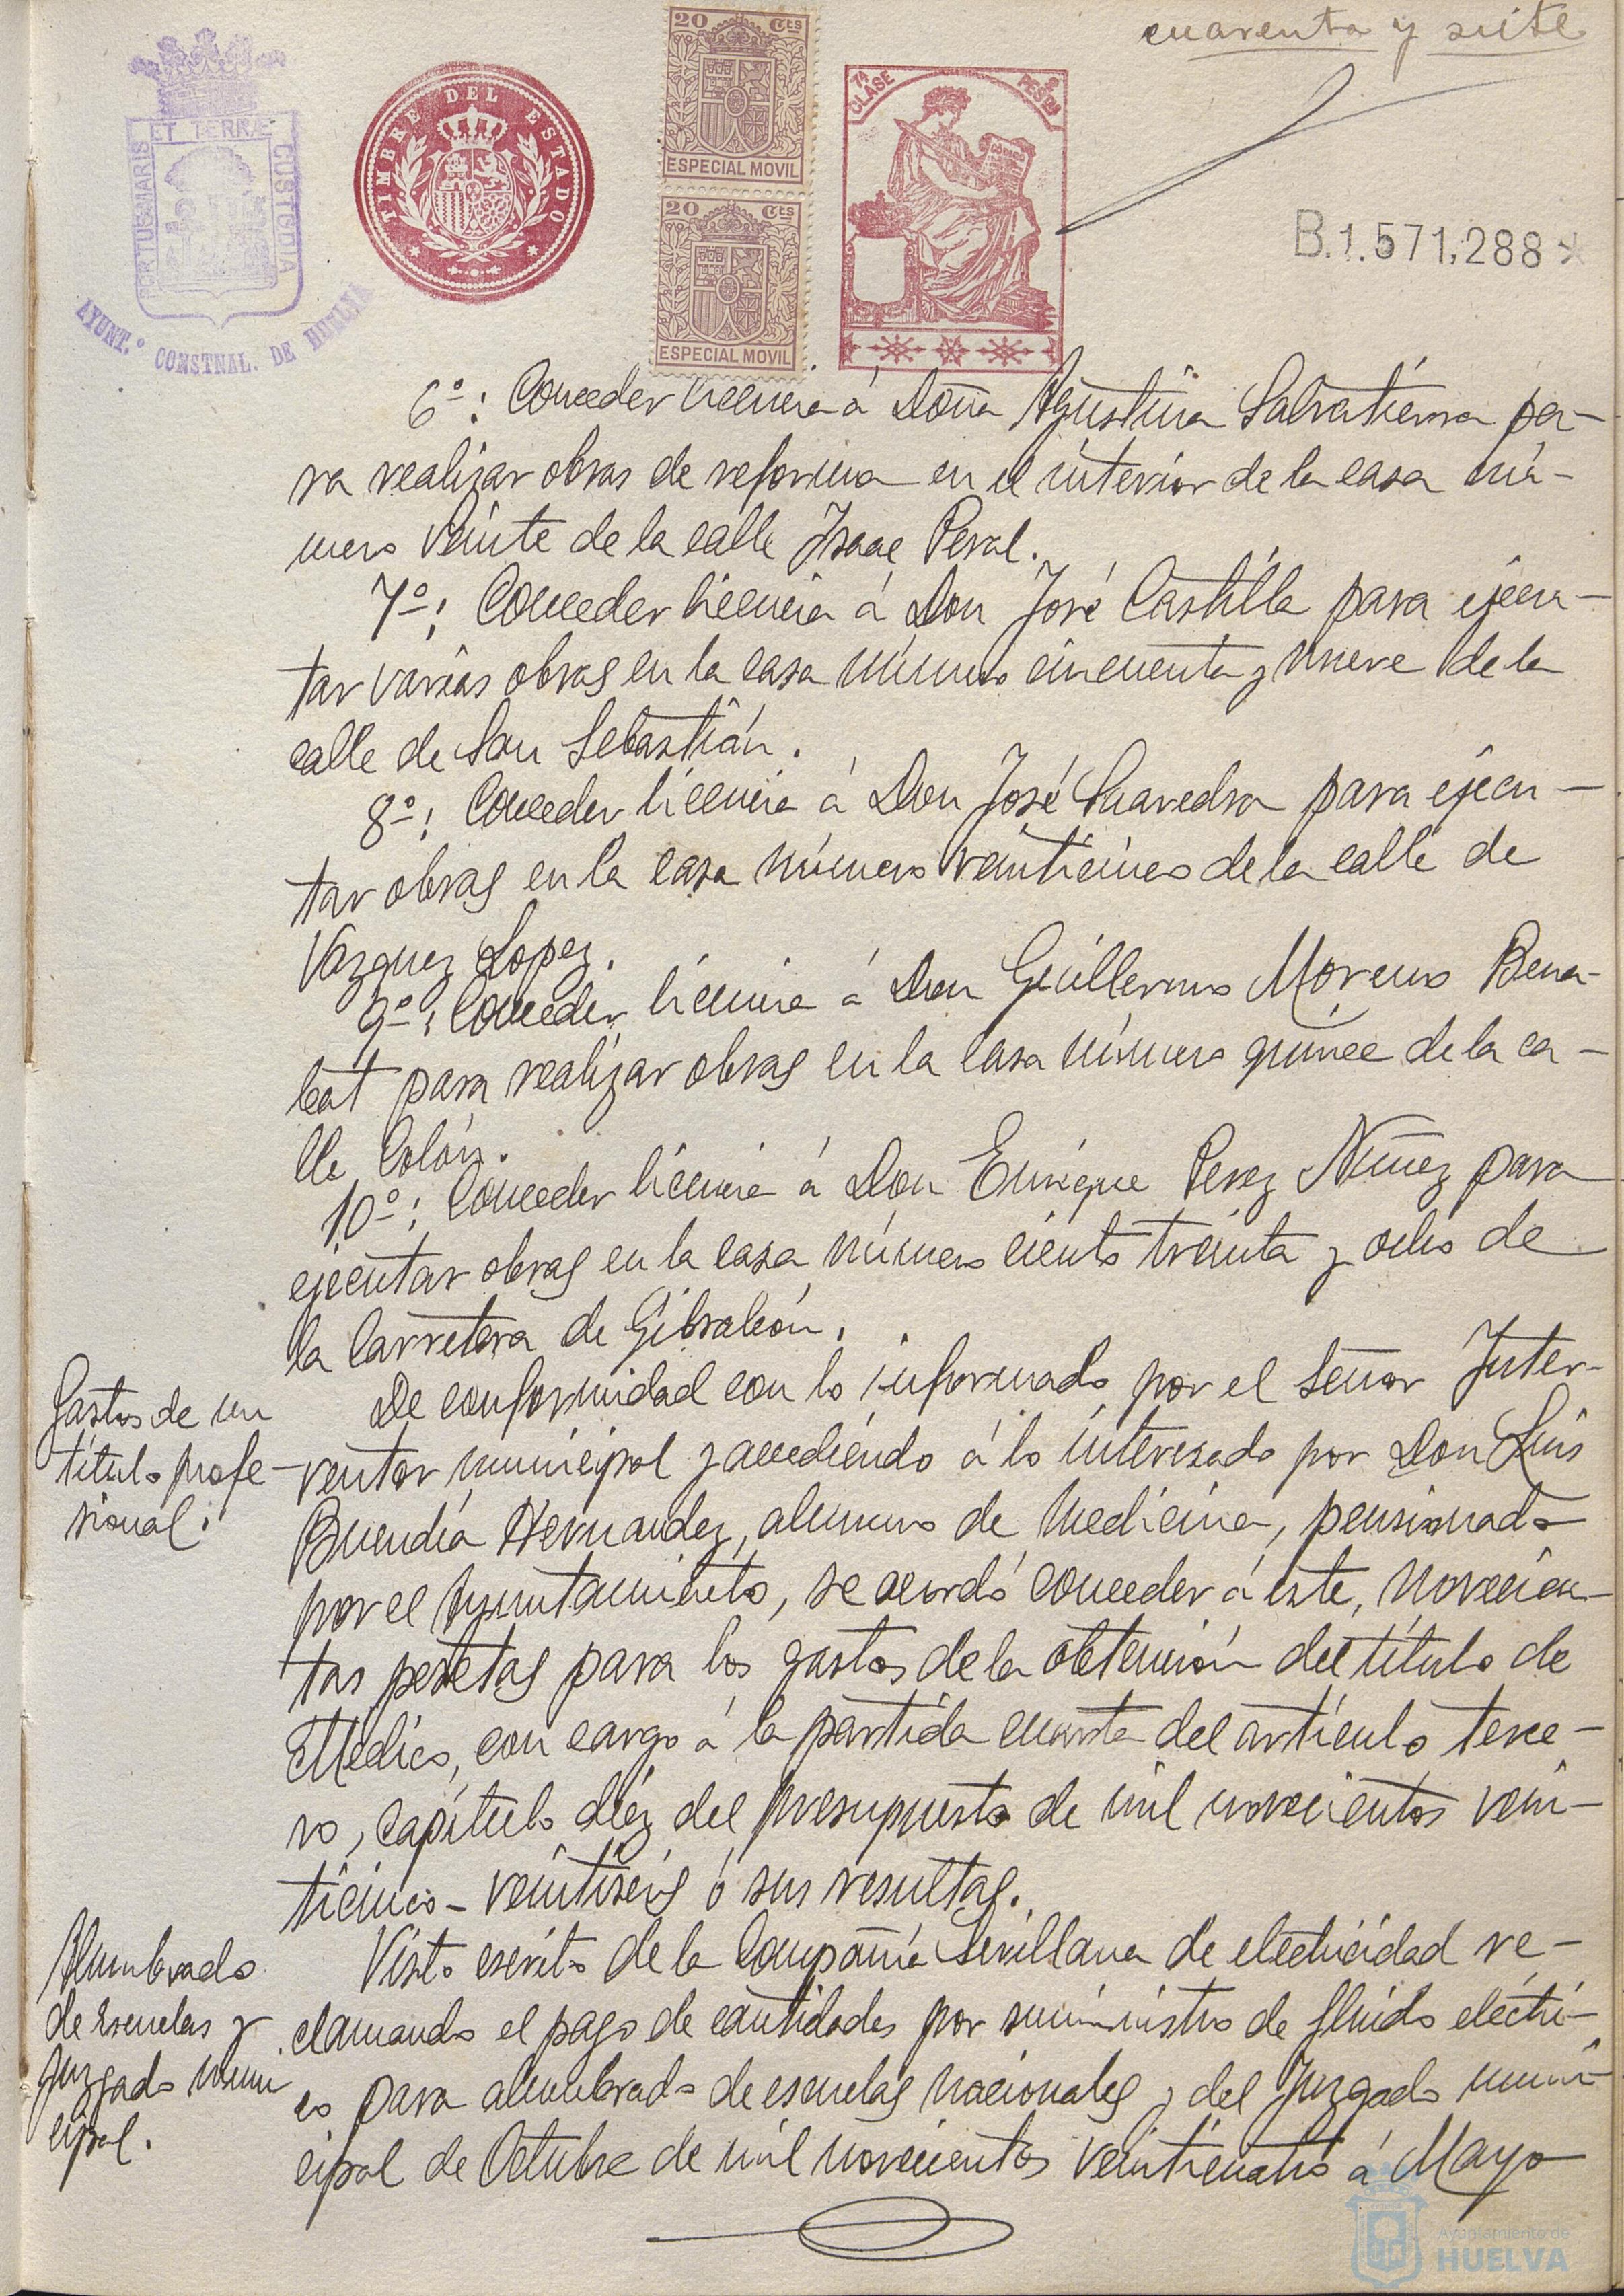 cuarenta y siete
PORTUS MARIS ET TERRÆ CUSTODIA
AYUNT.º CONSTNAL. DE HUELVA
TIMBRE DEL ESTADO
20 Cts
ESPECIAL MOVIL
20 Cts
ESPECIAL MOVIL
7ª CLASE
PESETA
CODIGO
B.1.571.288*
6º: Conceder licencia á Doña Agustina Salvatierra pa-
ra realizar obras de reforma en el interior de la casa nú-
mero veinte de la calle Isaac Peral.
7º: Conceder licencia á Don José Castilla para ejecu-
tar varias obras en la casa número cincuenta y nueve de la
calle de San Sebastián.
8º: Conceder licencia á Don José Saavedra para ejecu-
tar obras en la casa número veinticinco de la calle de
Vazquez Lopez.
9º: Conceder licencia á Don Guillermo Moreno Bena-
bat para realizar obras en la casa número quince de la ca-
lle Colón.
10º: Conceder licencia á Don Enrique Perez Nuñez para
ejecutar obras en la casa número ciento treinta y ocho de
la Carretera de Gibraleón.
Gastos de un
título profe-
sional.
De conformidad con lo informado por el señor Inter-
ventor municipal y accediendo á lo interesado por Don Luis
Buendía Hernandez, alumno de Medicina, pensionado
por el Ayuntamiento, se acordó conceder á este, novecien-
tas pesetas para los gastos de la obtención del título de
Médico, con cargo á la partida cuarta del artículo terce-
ro, capítulo diez del presupuesto de mil novecientos vein-
ticinco-veintiseis ó sus resultas.
Alumbrado
de Escuelas y
Juzgado muni
cipal.
Visto escrito de la Compañía Sevillana de electricidad re-
clamando el pago de cantidades por suministro de fluido eléctri-
co para alumbrado de escuelas nacionales y del Juzgado muni-
cipal de Octubre de mil novecientos veinticuatro á Mayo
Ayuntamiento de
HUELVA